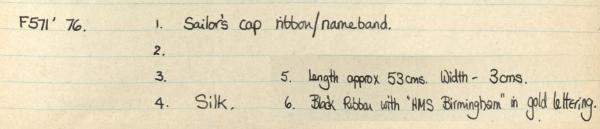 F571' 76. 1. Sailor's cap ribbon/nameband.
2.
3. 5. Length approx 53cms. Width - 3cms.
4. Silk. 6. Black Ribbon with "HMS Birmingham" in gold lettering.